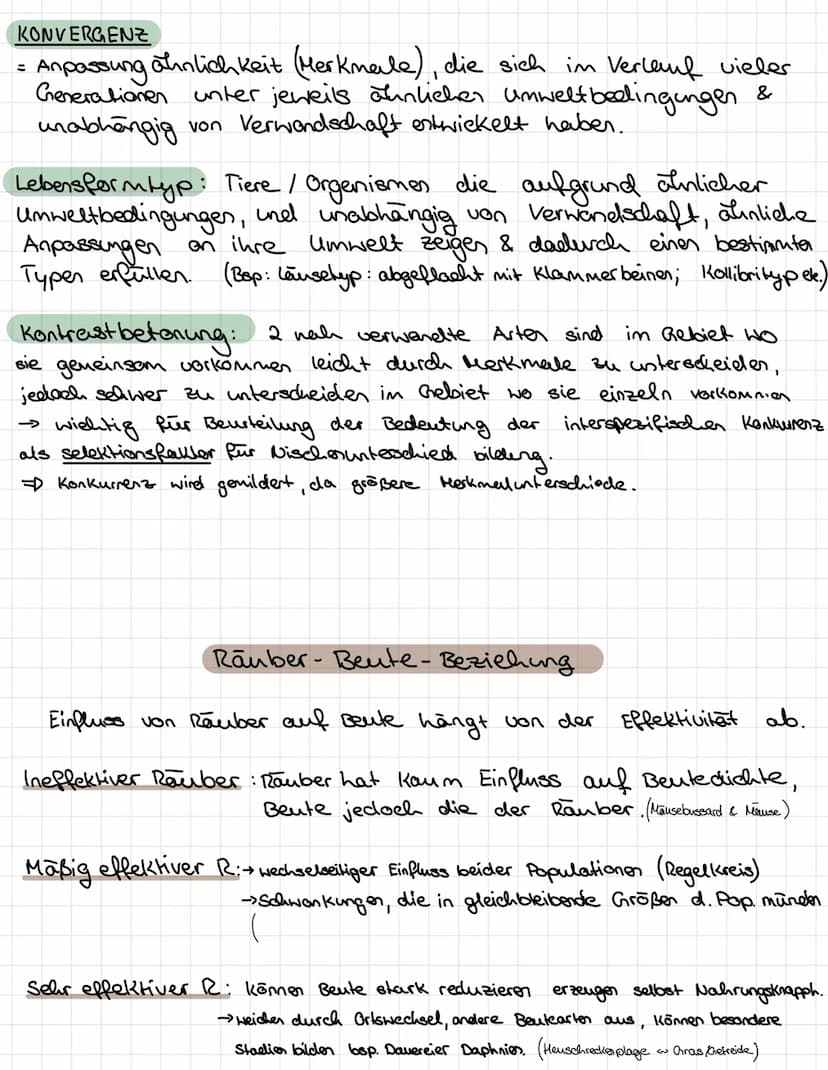 KONVERGENZ
= Anpassungähnlichkeit (Merkmale), die sich im Verlauf vieler
Generationen unter jeweils ähnlichen Umweltbedingungen &
unabhängig von Verwandschaft entwickelt haben.
Lebensformtyp: Tiere / Organismen die aufgrund ähnlicher
Umweltbedingungen, und unabhängig von Verwandschaft, ähnliche
Anpassungen an ihre Umwelt zeigen & dadurch einen bestimmten
Typen erfüllen. (Bsp: Läusetyp: abgeflacht mit Klammerbeinen; Kollibrityp etc.)
Kontrastbetonung: 2 nah verwandte Arten sind im Gebiet wo
sie gemeinsam vorkommen leicht durch Merkmale zu unterscheiden,
jedoch schwer zu unterscheiden im Gebiet wo sie einzeln vorkommen
→ wichtig für Beurteilung der Bedeutung der interspezifischen Konkurrenz
als selektionsfaktor für Nischenunterschied bildung.
⇒ Konkurrenz wird gemildert, da größere Merkmalunterschiede.
Räuber - Beute - Beziehung
Einfluss von Räuber auf Beute hängt von der Effektivität ab.
Ineffektiver Räuber: Räuber hat kaum Einfluss auf Beutedichte,
Beute jedoch die der Räuber. (Mäusebussard & Mäuse)
Mäßig effektiver R: → wechselseitiger Einfluss beider Populationen (Regelkreis)
→ Schwankungen, die in gleichbleibende Größen d. Pop. münden
(
Sehr effektiver R: können Beute stark reduzieren erzeugen selbst Nahrungsknapph.
→ weichen durch Ortswechsel, andere Beutearten aus, können besondere
Stadien bilden bsp. Dauereier Daphnien. (Heuschreckenplage Gras/Getreide)